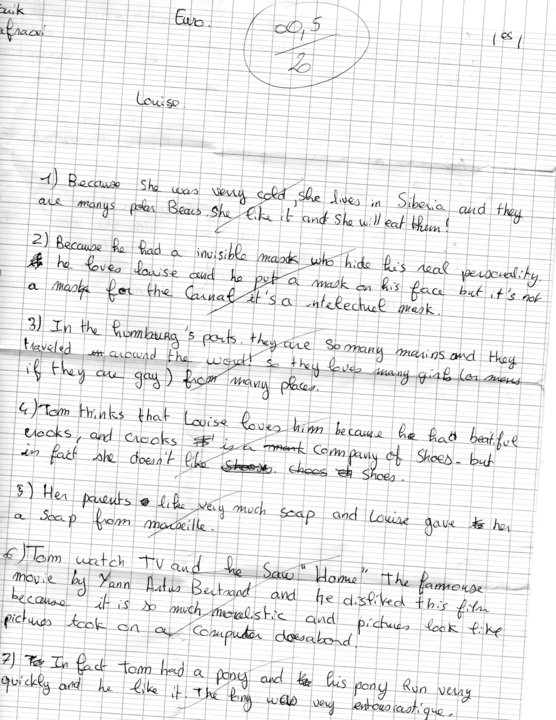 Euro.
00,5
20
Louise.
1) Because she was verry cold, she lives in Siberia and they
are manys polar Bears. She like it and she will eat them!
2) Because he had a invisible mask who hide his real personality.
he loves Louise and he put a mask on his face but it's not
a mask for the Carnaf it's a intelectuel mask.
3) In the hombourg's ports. they are so many marins and they
traveled around the wordt so they loves many girls (or mens
if they are gay) from many places.
4) Tom thinks that Louise loves him because he had beatiful
crooks, and crooks is a company of Shoes. but
in fact she doesn't like shoes.
5) Her parents like very much soap and Louise gave her
a soap from marseille.
6) Tom watch TV and he saw "Home" The fammouse
movie by Yann Artus Bertrand and he disliked this film
because it is so much moralistic and pictures look like
pictures took on a computer doesabord.
7) In fact Tom had a pony and his pony Run verry
quickly and he like it. The pony was very enthousiastique.